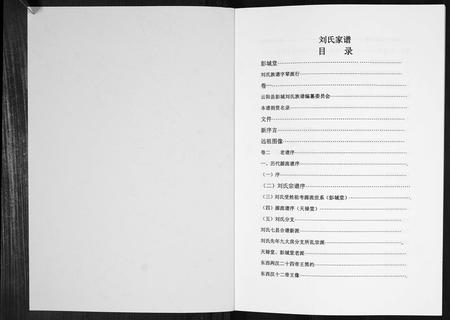 刘氏家谱
目 录
彭城堂
刘氏族谱字辈派行
卷一
云阳县彭城刘氏族谱编纂委员会
本谱捐资名录
文件
新序言
远祖图像
卷二 老谱序
一、历代源流谱序
（一）序
（二）刘氏宗谱序
（三）刘氏受姓祖考源流世系（彭城堂）
（四）源流谱序（天禄堂）
（五）刘氏分支
刘氏七县合谱新派
刘氏先年九大房分支所乱宗派
天禄堂、彭城堂老派
东西两汉二十四帝王简约
东西汉十二帝王像